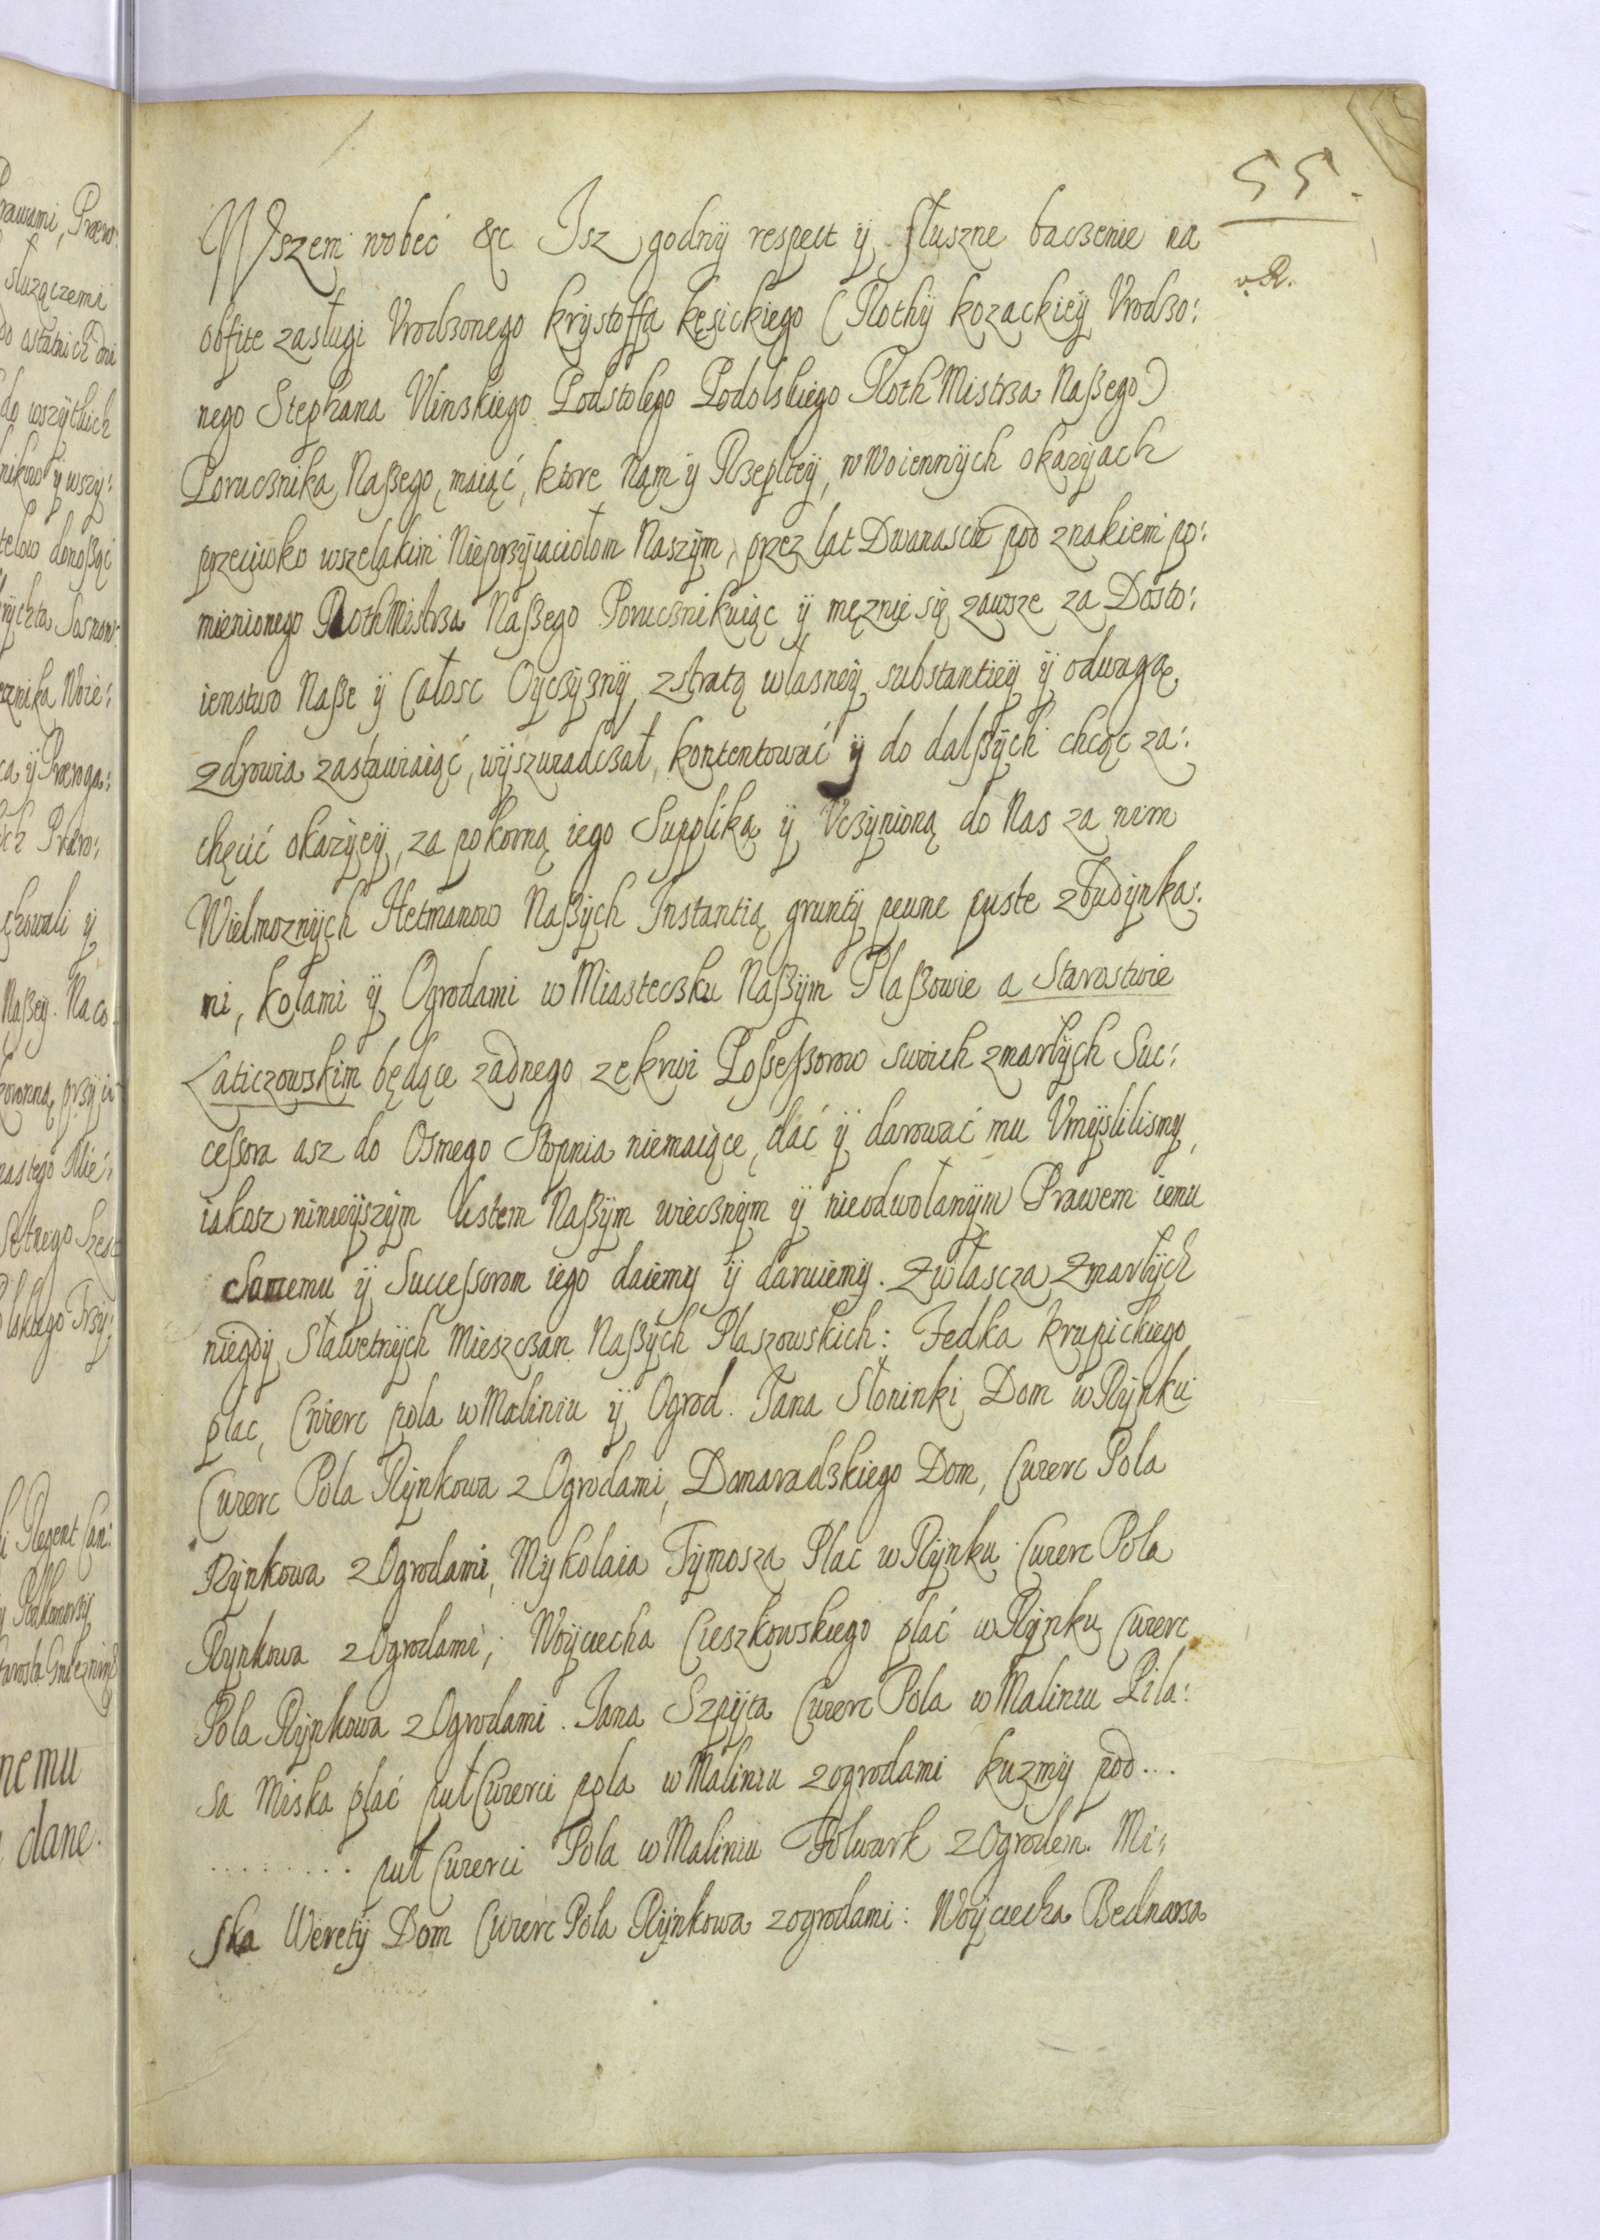 55.
v. R.
Wszem wobeć &c Isz godny respect ÿ słuszne baczenie na
obfite zasługi Vrodzonego krystoffa kęsickiego (Rothÿ kozackieÿ Vrodzo:
nego Stephana Vlinskiego Podstolego Podolskiego RothMistrza Naßego)
Porucznika Naßego, maiąć, ktore Nąm ÿ Rzeplteÿ, w Woiennÿch okazÿach
przeciwko wszelakim Nieprzÿiaciołom Naszÿm, przez lat Dwanascie pod znakiem po:
mienionego RothMistrza Naßego Porucznikuiąc ÿ męznie się zawsze za Dosto:
ienstwo Naße ÿ Całosc Oÿczÿznÿ z stratą własneÿ substantieÿ ÿ odwagą
zdrowia zastawiaiąć, wÿszwiadczał, kontentować ÿ do dalßÿch chcąc za:
chęcić okazÿeÿ, za pokorną iego Supplika ÿ Vczÿnioną do Nas za nim
Wielmoznÿch Hetmanow Naßÿch Instantią gruntÿ pewne puste z budÿnka:
mi, kołami ÿ Ogrodami w Miasteczku Naßÿm Plaßowie a Starostwie
Laticzowskim będące zadnego ze krwi Possessorow swoich zmarłÿch Suc:
cessora asz do Osmego Stopnia niemaiące, dać ÿ darować mu Vmÿslilismy,
iakosz ninieÿszÿm listem Naßÿm wiecznÿm ÿ nieodwołanÿm Prawem iemu
Samemu ÿ Successorom iego daiemy ÿ daruiemÿ. Zwłascza Zmarłÿch
niegdÿ Sławetnÿch Mieszczan Naßÿch Plaszowskich: Fedka krupickiego
plac, Cwierc pola w Maliniu ÿ Ogrod. Jana Słoninki Dom w Rÿnku
Cwierc Pola Rÿnkowa z Ogrodami, Domaradzkiego Dom, Cwierc Pola
Rÿnkowa z Ogrodami, Mÿkolaia Tÿmosza Plac w Rÿnku Cwierc Pola
Rynkowa z Ogrodami; Woÿciecha Cieszkowskiego plać w Rÿnku Cwierc
Pola Rÿnkowa z Ogrodami. Jana Szpÿta Cwierc Pola w Maliniu Pila:
sa Miska plać puł Cwierci pola w Maliniu z ogrodami kuzmÿ pod...
......... puł Cwierci Pola w Maliniu Folwark z Ogrodem. Mi:
ska Weretÿ Dom Cwierc Pola Rÿnkowa z ogrodami: Woÿciecha Bednarza